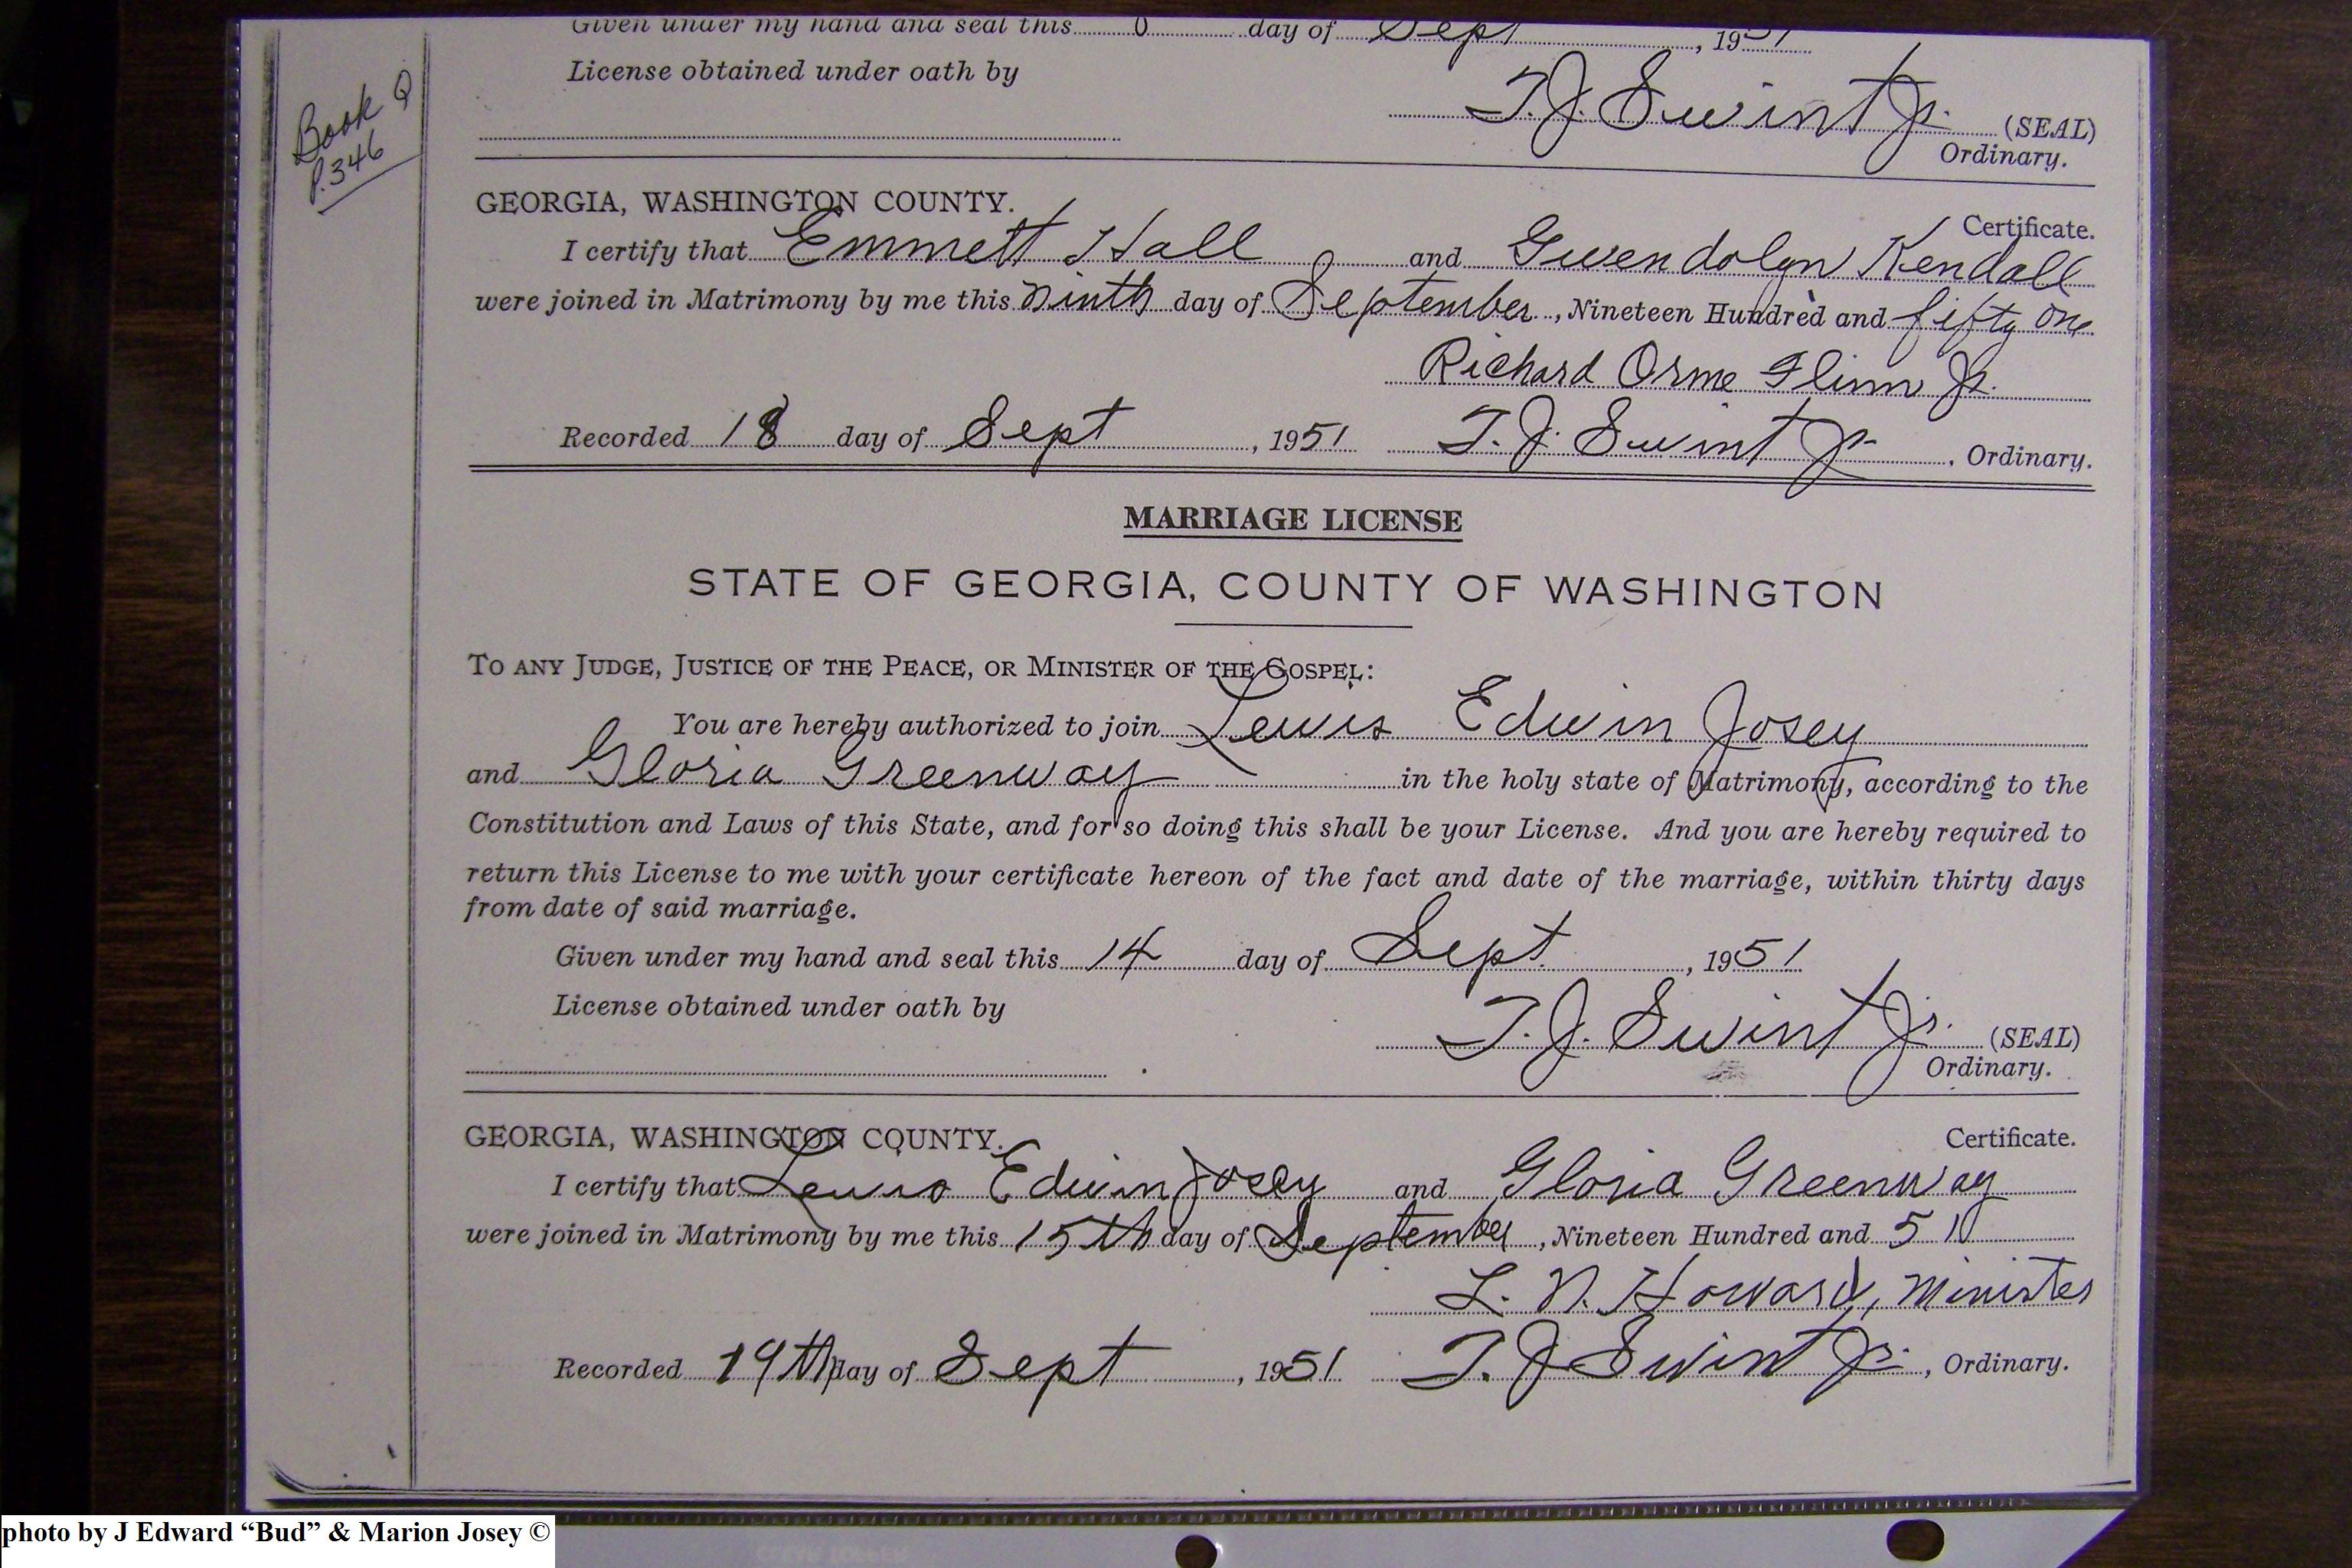 Given under my hand and seal this day of Sept, 1951
License obtained under oath by
T. J. Swint Jr. (SEAL)
Ordinary.
Book Q
P. 346
GEORGIA, WASHINGTON COUNTY.
Certificate.
I certify that Emmett Hall and Gwendolyn Kendall
were joined in Matrimony by me this Ninth day of September, Nineteen Hundred and fifty one
Richard Orme Flinn Jr.
Recorded 18 day of Sept, 1951 T. J. Swint Jr., Ordinary.
MARRIAGE LICENSE
STATE OF GEORGIA, COUNTY OF WASHINGTON
TO ANY JUDGE, JUSTICE OF THE PEACE, OR MINISTER OF THE GOSPEL:
You are hereby authorized to join Lewis Edwin Josey
and Gloria Greenway in the holy state of Matrimony, according to the
Constitution and Laws of this State, and for so doing this shall be your License. And you are hereby required to
return this License to me with your certificate hereon of the fact and date of the marriage, within thirty days
from date of said marriage.
Given under my hand and seal this 14 day of Sept., 1951
License obtained under oath by
T. J. Swint Jr. (SEAL)
Ordinary.
GEORGIA, WASHINGTON COUNTY. Certificate.
I certify that Lewis Edwin Josey and Gloria Greenway
were joined in Matrimony by me this 15th day of September, Nineteen Hundred and 51
L. N. Howard, Minister
Recorded 19th day of Sept, 1951 T. J. Swint Jr., Ordinary.
photo by J Edward “Bud” & Marion Josey ©